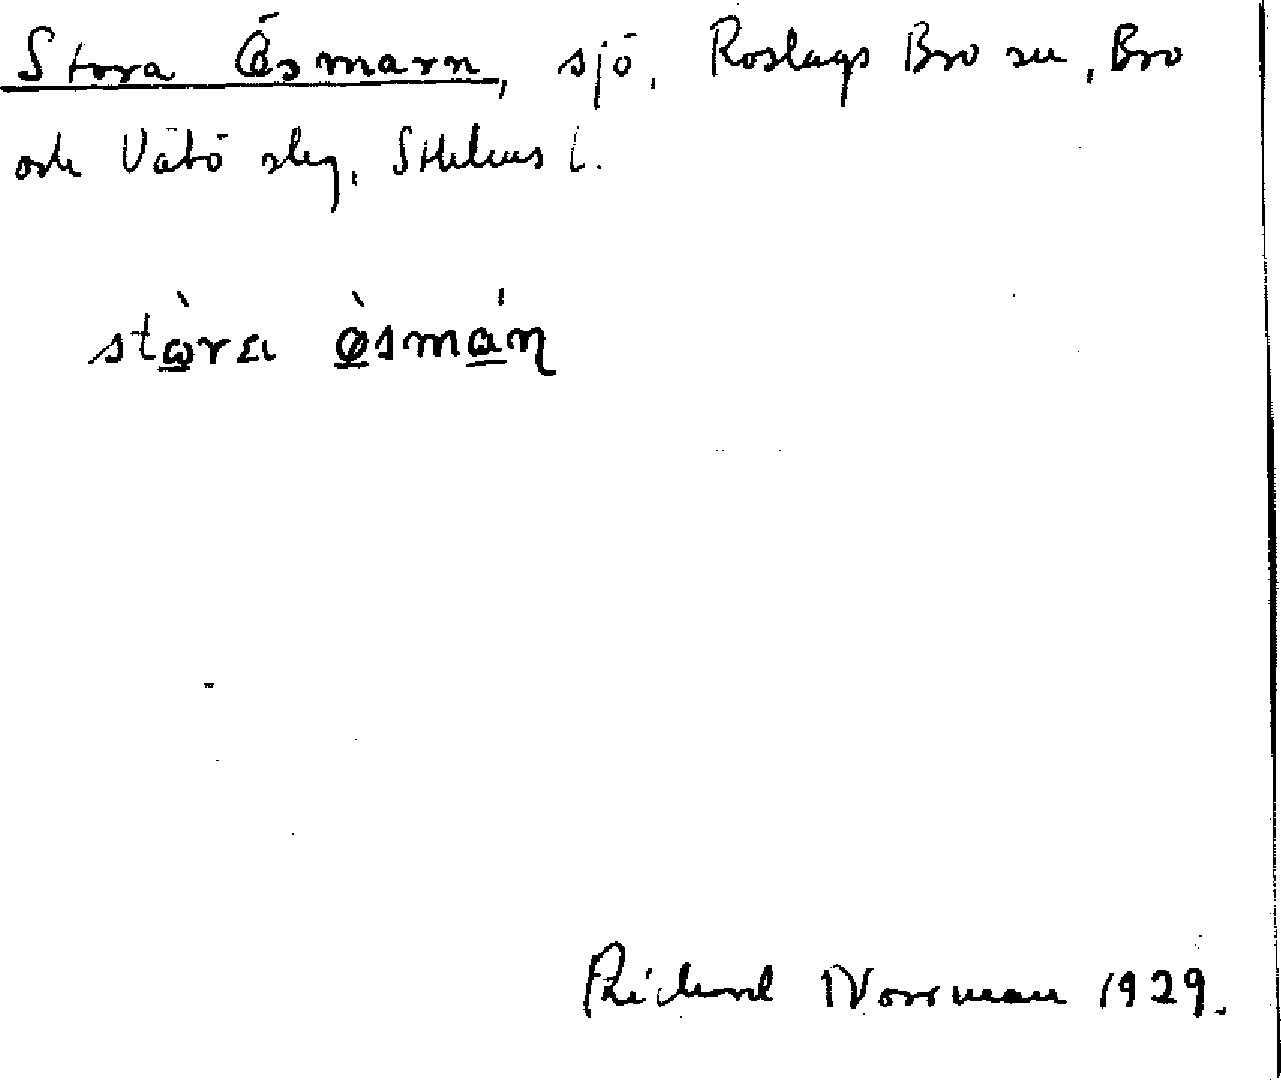 Stora Ösmarn, sjö, Roslags Bro sn, Bro
och Vätö skg, Sthlms l.
stὼra ø̀smán
Richard Norrman 1929.